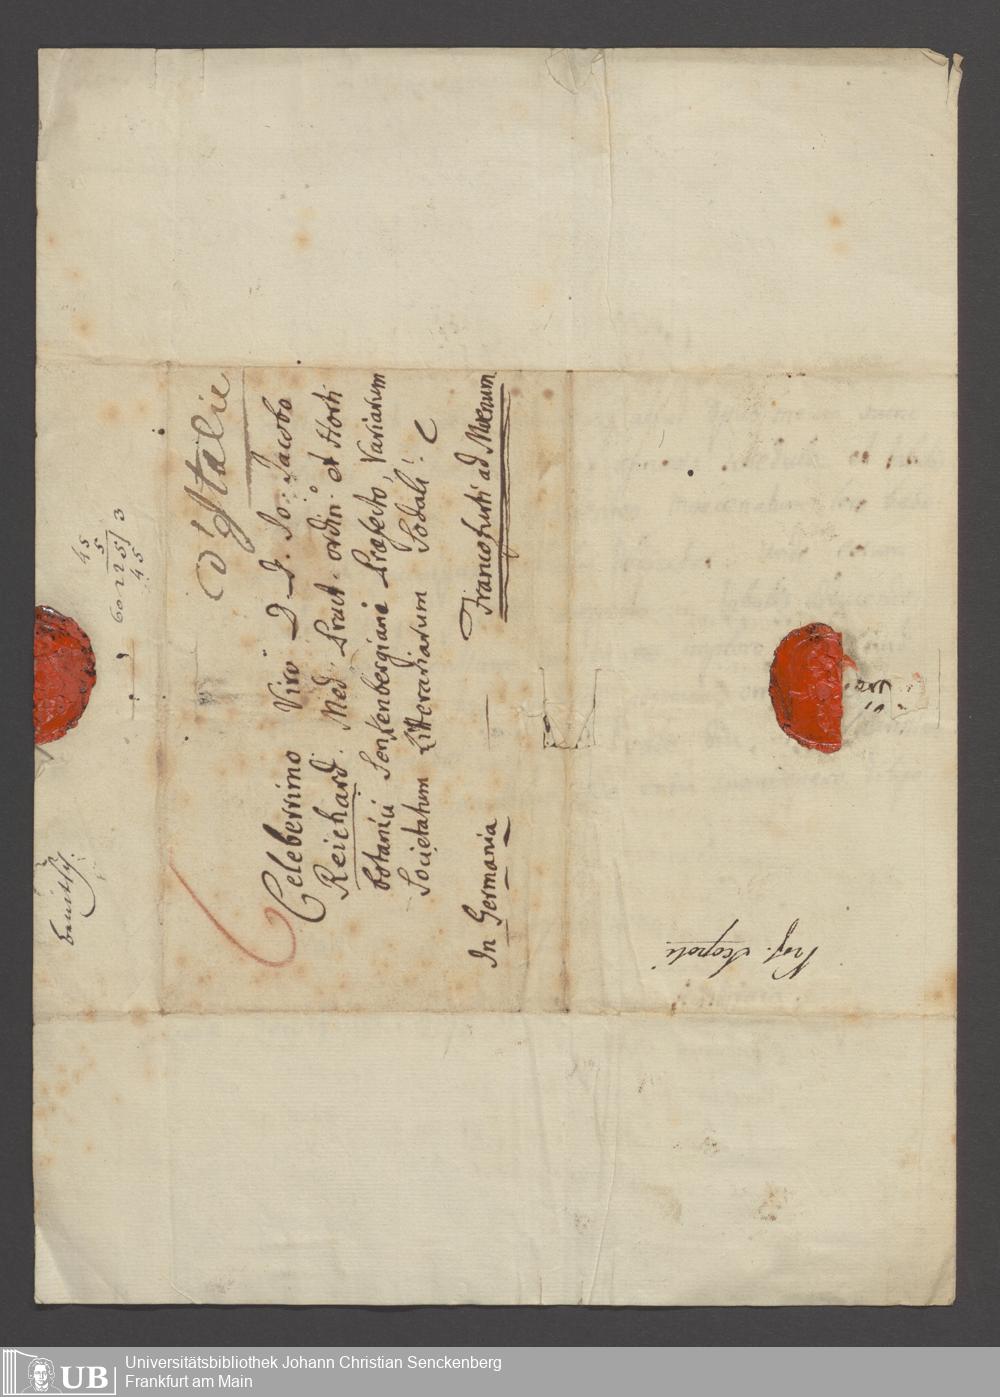 d'Italie
Celeberrimo Viro D. D. Jo: Jacobo
Reichard. Med. Pract. ordin: et Horti
botanici Senkenbergiani Præfecto, variarum
Societatum Litterariarum Sodali.
Francofurti ad Mœnum
In Germania
45
5
60 225 3
45
Prof. Scopoli
UB
Universitätsbibliothek Johann Christian Senckenberg
Frankfurt am Main